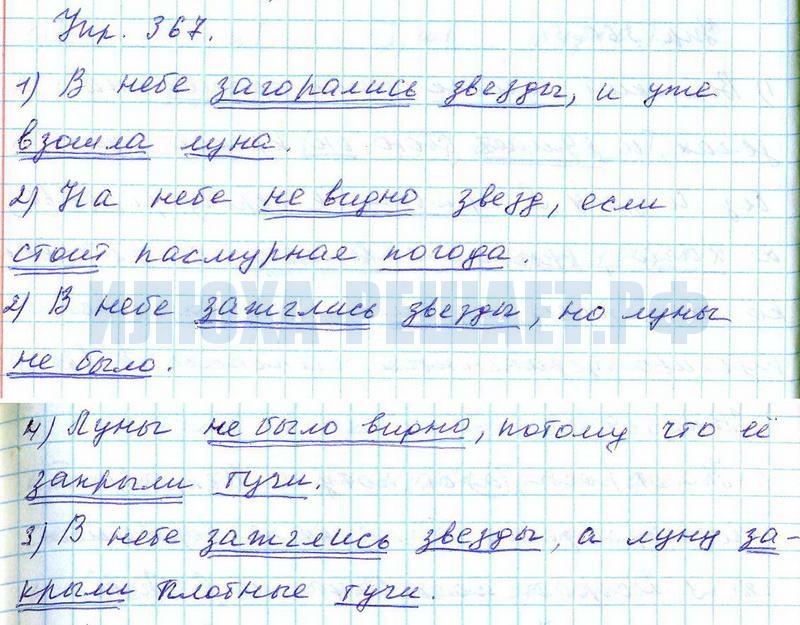 Упр. 367.
1) В небе загорались звезды, и уже
взошла луна.
2) На небе не видно звезд, если
стоит пасмурная погода.
2) В небе зажглись звезды, но луны
ИЛЮХА-РЕШАЕТ.РФ
не было.
4) Луны не было видно, потому что её
закрыли тучи.
3) В небе зажглись звезды, а луну за-
крыли плотные тучи.